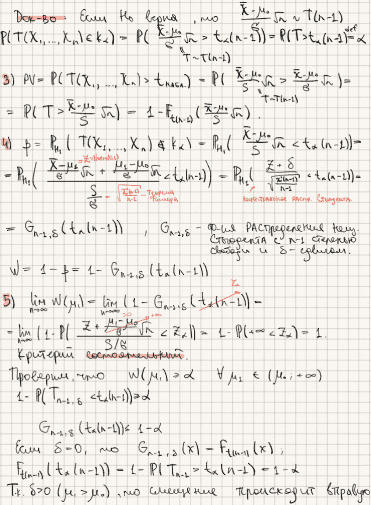 Док-во Если H₀ верна, то (X̄-μ₀)/S √n ~ T(n-1)
P(T(X₁,..., Xₙ) ∈ K_α) = P( (X̄-μ₀)/S √n > t_α(n-1)) = P(T > t_α(n-1)) = α
T~T(n-1)
3) PV = P( T(X₁,..., Xₙ) > t набл.) = P( (X̄-μ₀)/S √n > (X̄-μ₀)/S √n) =
T~T(n-1)
= P( T > (X̄-μ₀)/S √n) = 1 - F_t(n-1)( (X̄-μ₀)/S √n) .
4) β = P_H₁( T(X₁,..., Xₙ) ∉ K_α) = P_H₁( (X̄-μ₀)/S √n < t_α(n-1)) =
= P_H₁( ( (X̄-μ₁)/σ √n + (μ₁-μ₀)/σ √n ) / (S/σ) < t_α(n-1)) = P_H₁( (Z + δ) / √(χ²(n-1)/(n-1)) < t_α(n-1)) =
теорема Фишера
= G_n-1,δ (t_α(n-1)) , G_n-1,δ - ф-ия распределения нец.
Стьюдента с n-1 степенью
свободы и δ-сдвигом.
W = 1 - β = 1 - G_n-1,δ (t_α(n-1))
5) lim n→∞ W(μ₁) = lim n→∞ (1 - G_n-1,δ (t_α(n-1))) = Z_α
= lim n→∞ (1 - P( (Z + (μ₁-μ₀)/σ √n) / (S/σ) < Z_α)) = 1 - P(+∞ < Z_α) = 1.
Критерий состоятельный.
Проверим, что W(μ₁) ≥ α ∀ μ₁ ∈ (μ₀; +∞)
1 - P(T_n-1,δ < t_α(n-1)) ≥ α
G_n-1,δ (t_α(n-1)) ≤ 1-α
Если δ=0, то G_n-1,δ (x) = F_t(n-1)(x) ;
F_t(n-1)(t_α(n-1)) = 1 - P(T_n-1 > t_α(n-1)) = 1-α
Т.к. δ>0 (μ₁ > μ₀), то смещение происходит вправо